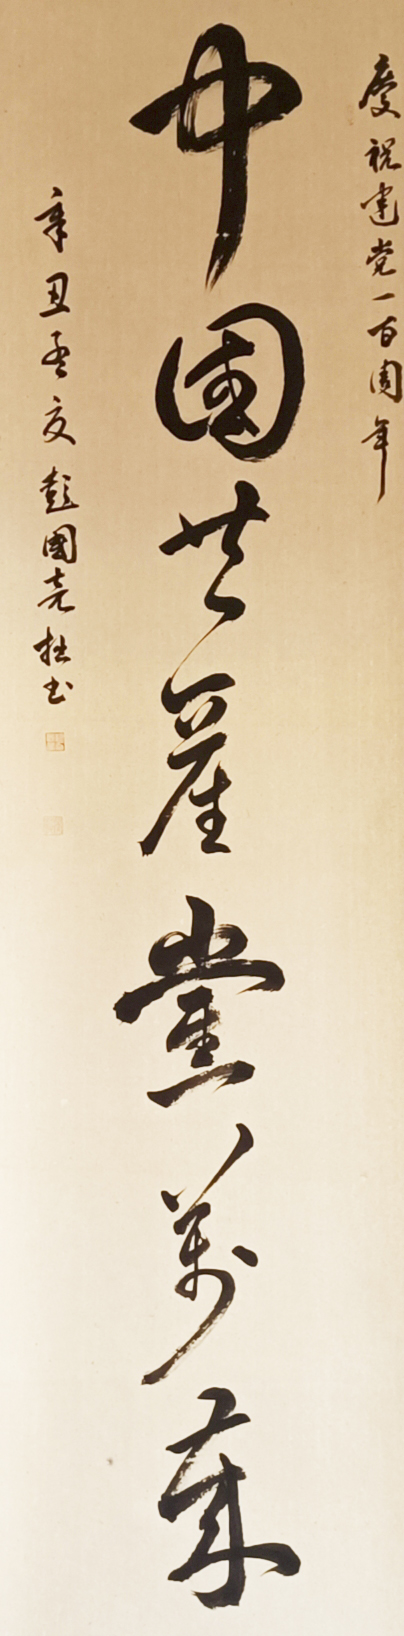 慶祝建党一百周年
中國共產黨萬歲
辛丑孟夏彭國堯拙书